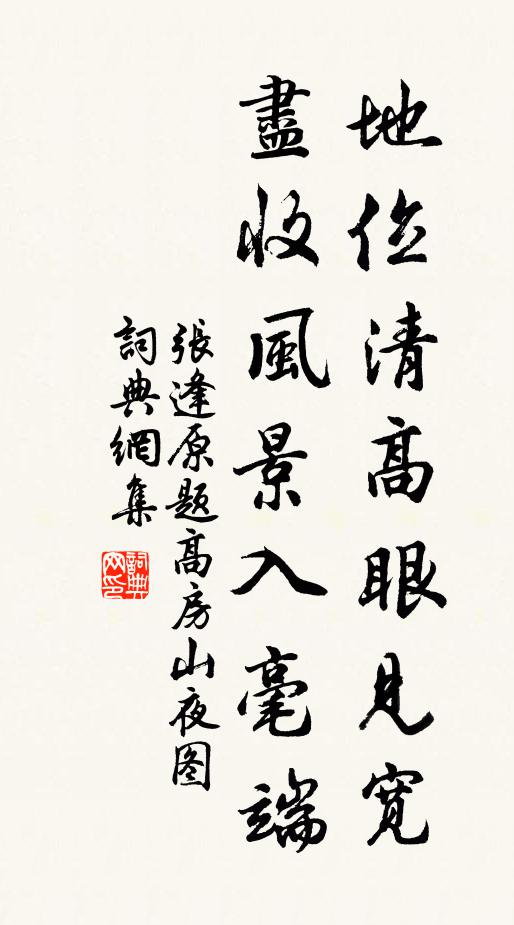 地位清高眼見寬
盡收風景入毫端
張逢原题高房山夜图
詞典網集
詞典網印